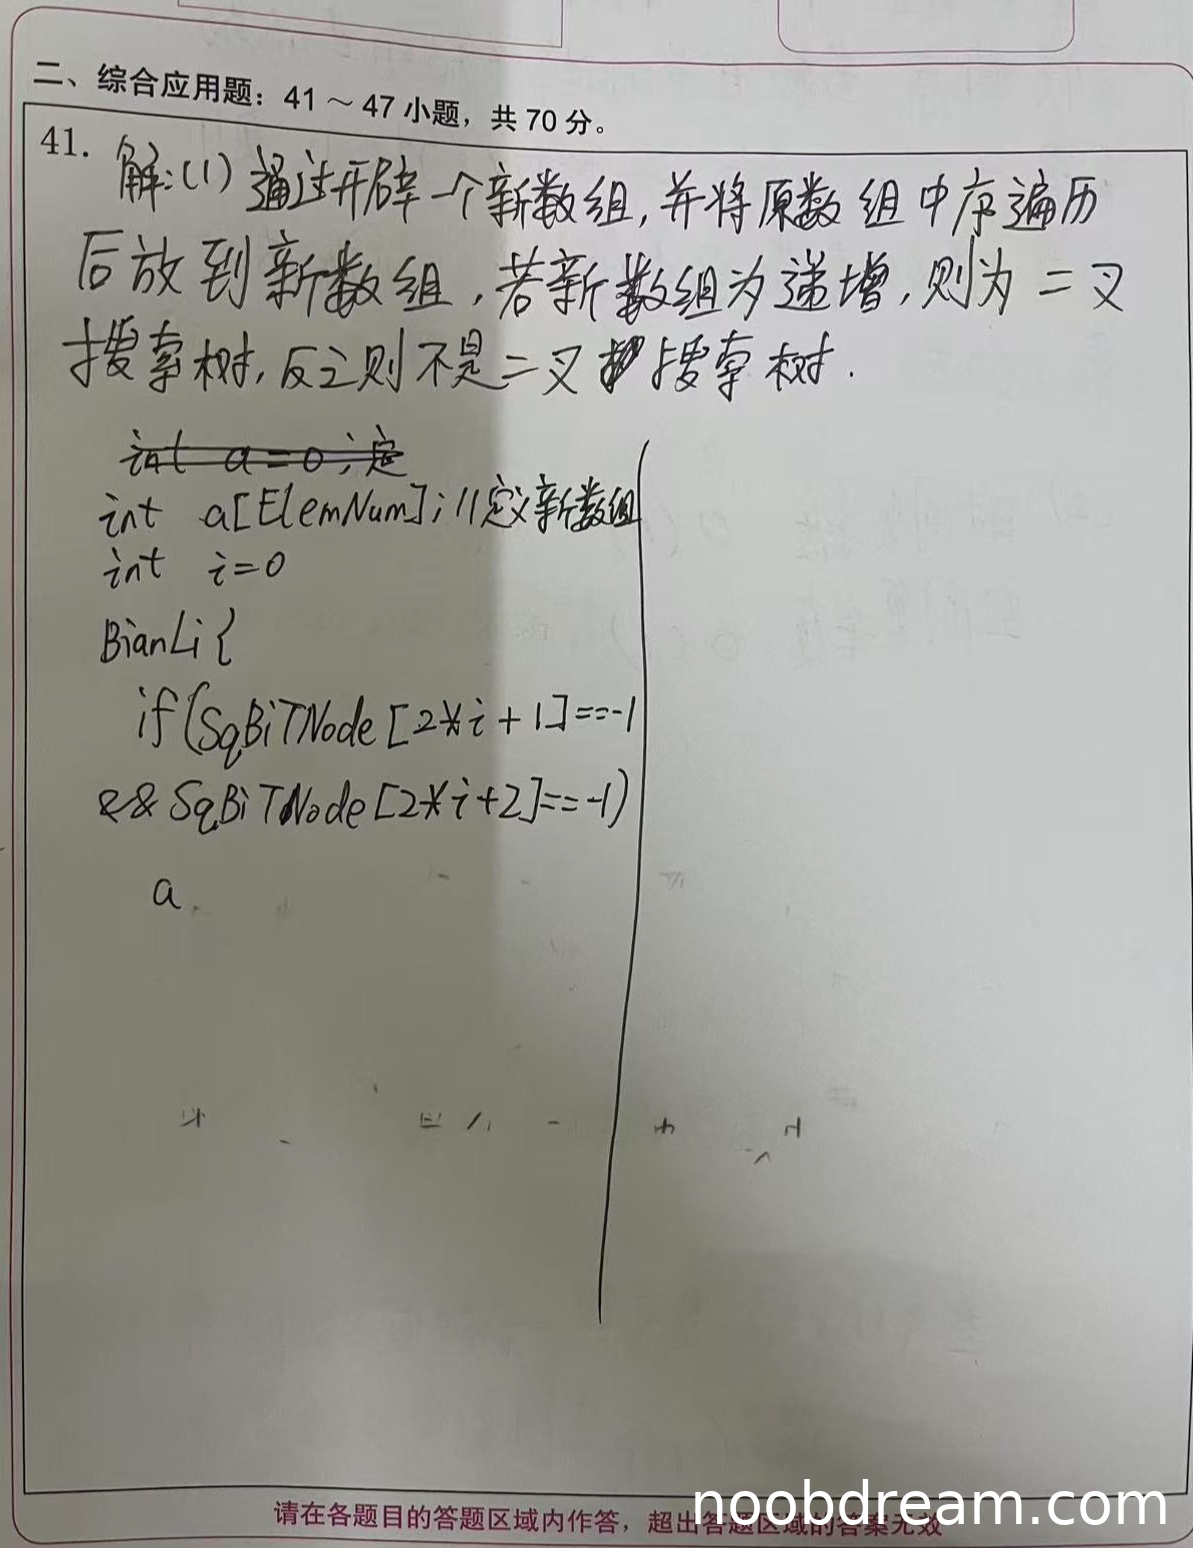 二、综合应用题：41～47 小题，共 70 分。
41. 解:(1) 通过开辟一个新数组, 并将原数组中序遍历
后放到新数组, 若新数组为递增, 则为二叉
搜索树, 反之则不是二叉搜索树.
int a=0;定
int a[ElemNum]; //定义新数组
int i=0
BianLi{
if(SqBiTNode[2*i+1]==-1
&&SqBiTNode[2*i+2]==-1)
a
请在各题目的答题区域内作答，超出答题区域的答案无效
noobdream.com